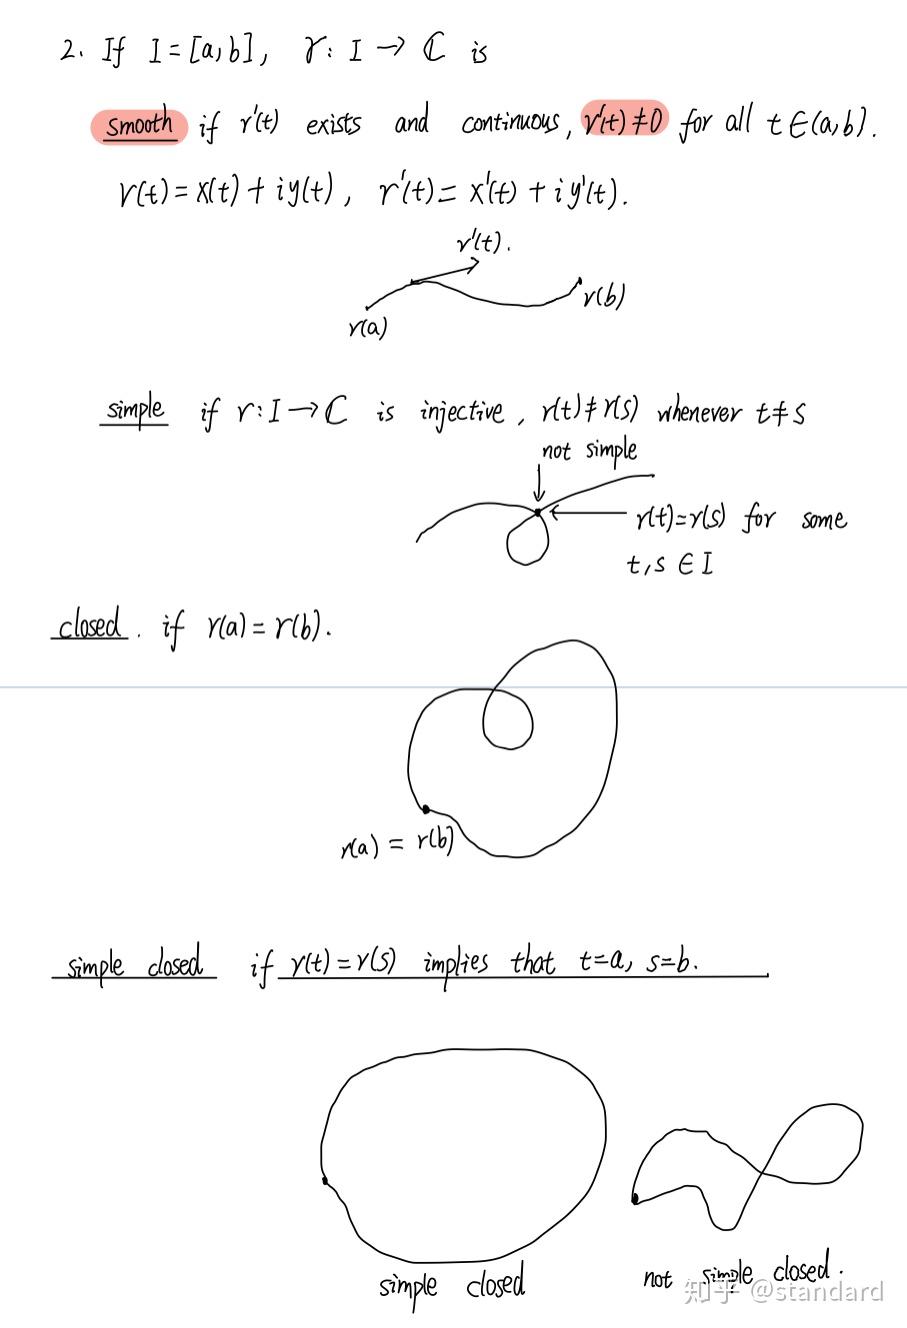 2. If I = [a,b], γ: I → ℂ is
smooth if γ'(t) exists and continuous, γ'(t)≠0 for all t∈(a,b).
γ(t) = x(t) + iy(t), γ'(t) = x'(t) + iy'(t).
γ'(t).
γ(b)
γ(a)
simple if γ: I → ℂ is injective, γ(t)≠γ(s) whenever t≠s
not simple
γ(t)=γ(s) for some
t,s ∈ I
closed. if γ(a) = γ(b).
γ(a) = γ(b)
simple closed if γ(t) = γ(s) implies that t=a, s=b.
simple closed
not simple closed.
知乎 @standard